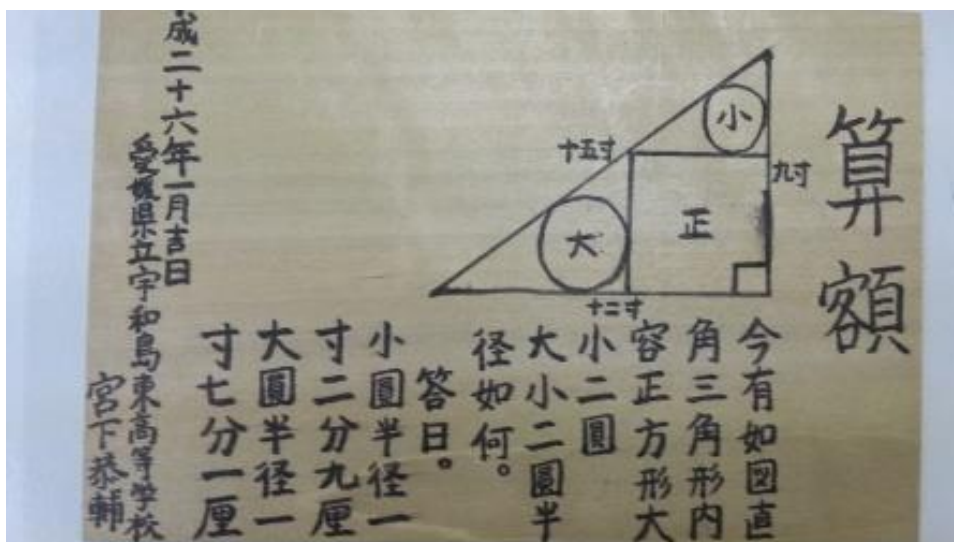 算額
十五寸
小
九寸
正
大
十二寸
今有如図直
角三角形内
容正方形大
小二圓
大小二圓半
径如何。
答曰。
小圓半径一
寸二分九厘
大圓半径一
寸七分一厘
成二十六年一月吉日
愛媛県立宇和島東高等学校
宮下恭輔